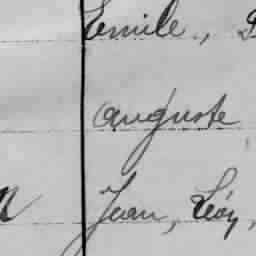 Emile,
Auguste
Jean, Léon,